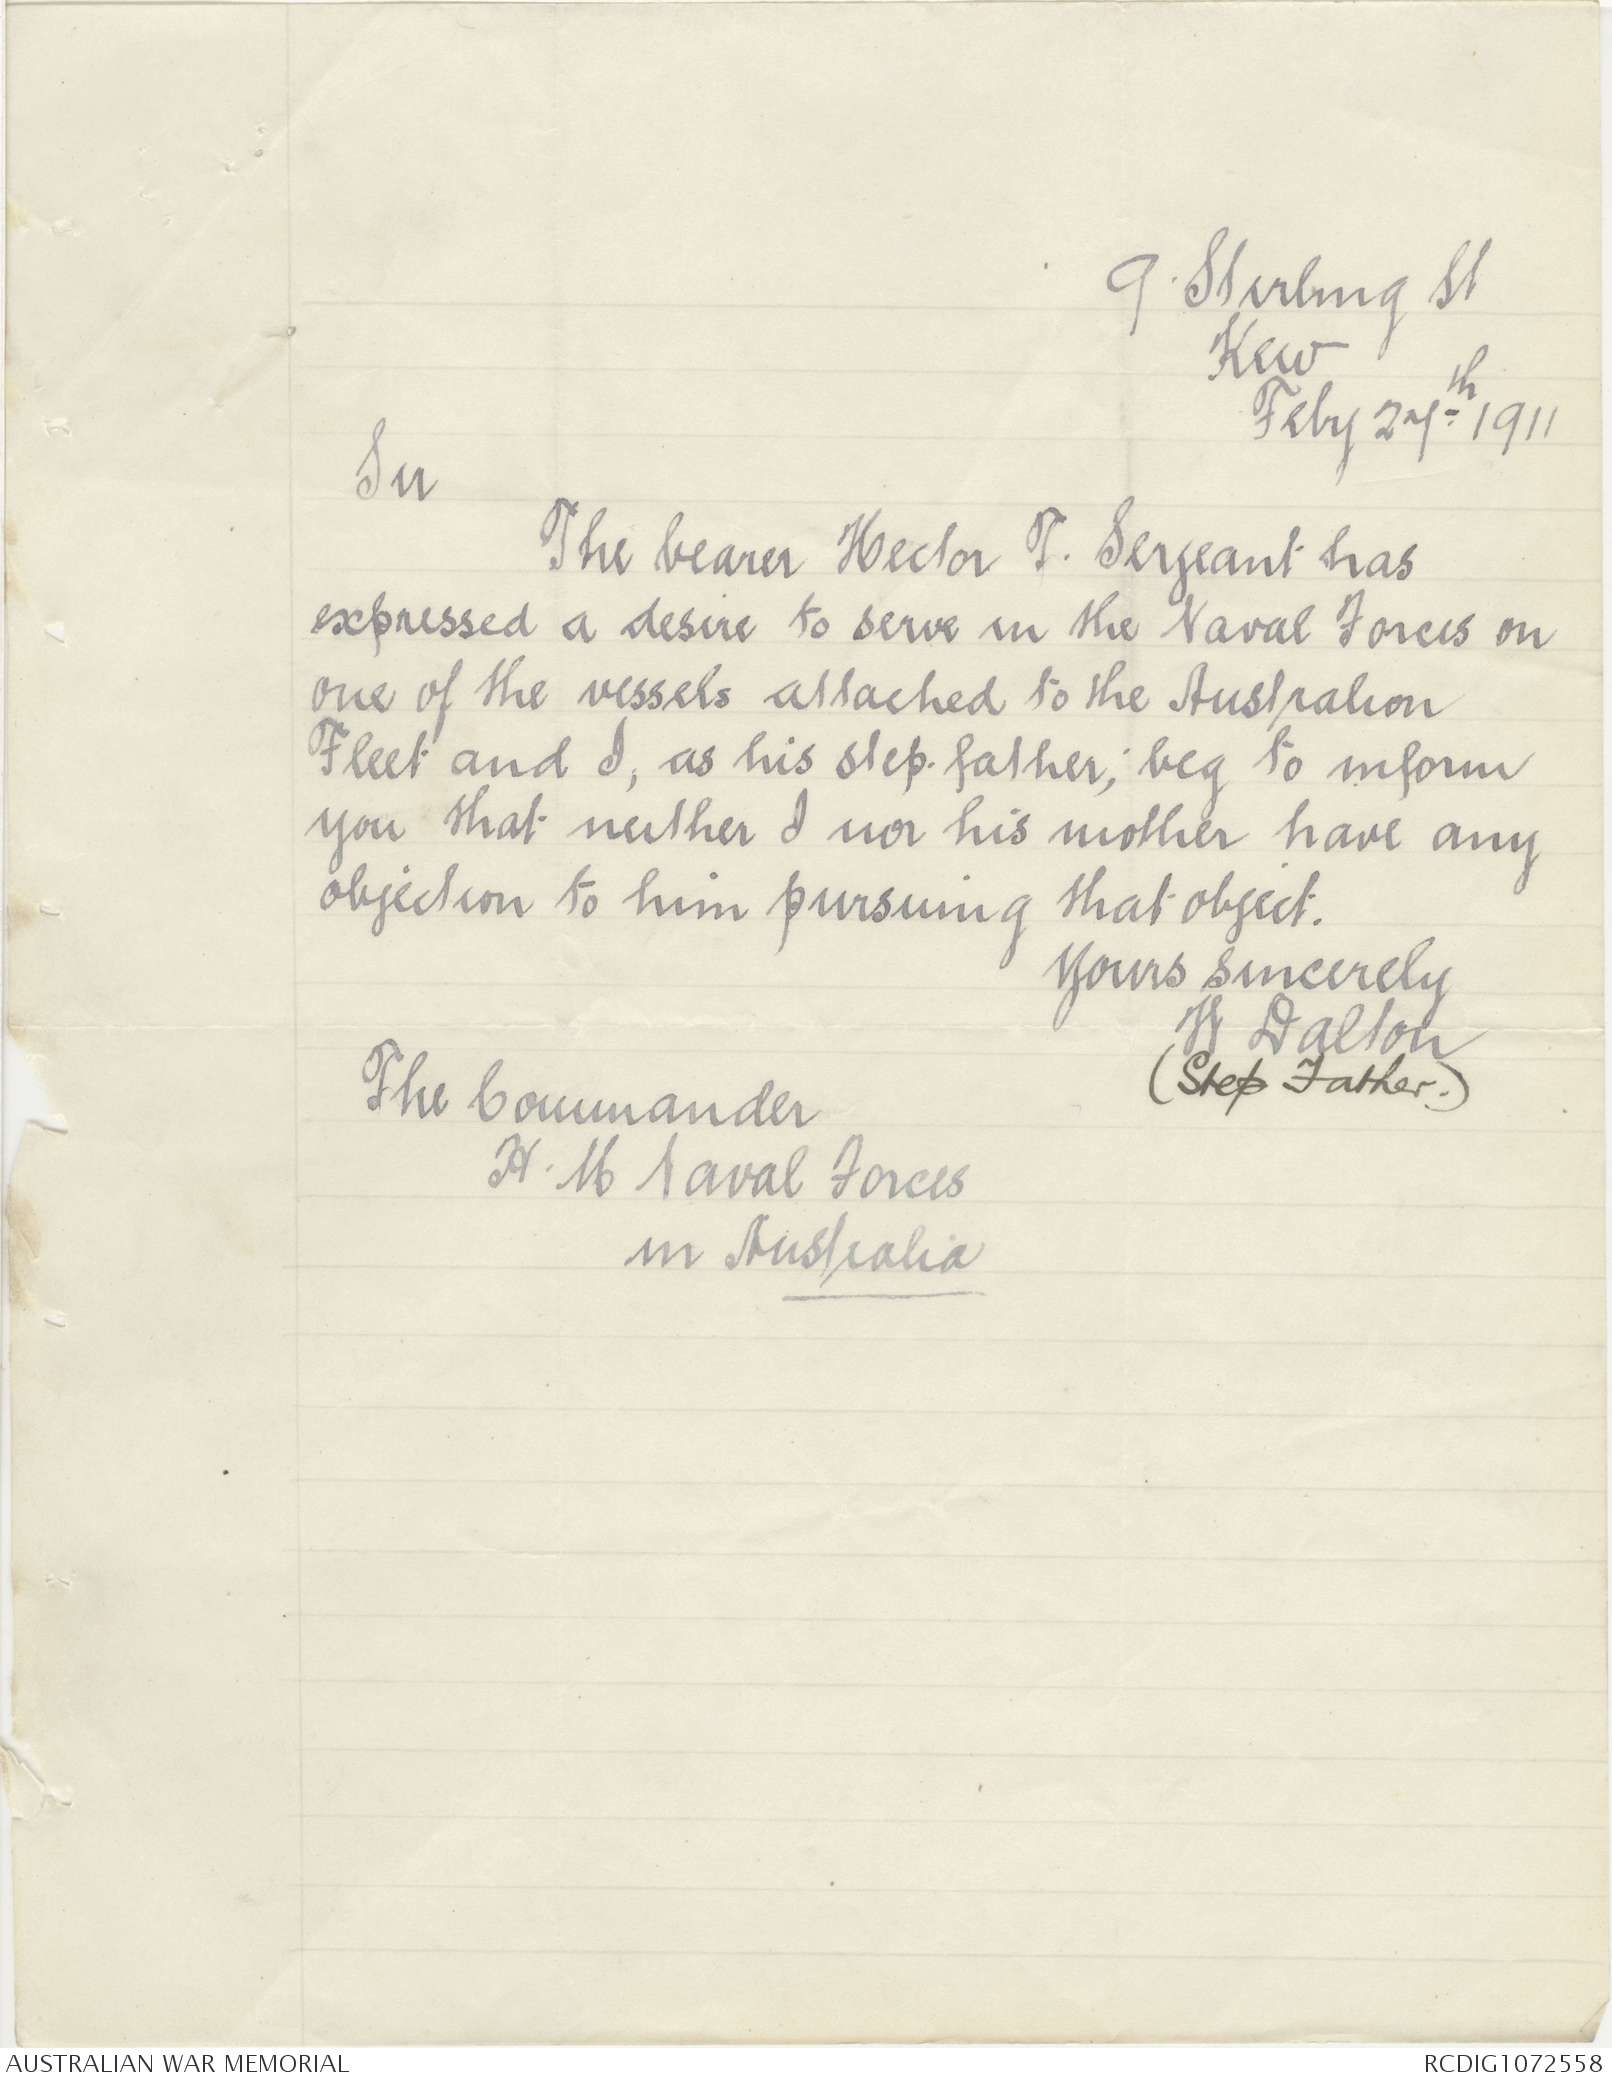 9. Sterling St
Kew
Feby 27th 1911
Sir
The bearer Hector T. Sergeant has
expressed a desire to serve in the Naval Forces on
one of the vessels attached to the Australian
Fleet and I, as his step-father, beg to inform
you that neither I nor his mother have any
objection to him pursuing that object.
Yours sincerely
W Dalton
(Step Father.)
The Commander
H. M Naval Forces
in Australia
AUSTRALIAN WAR MEMORIAL
RCDIG1072558